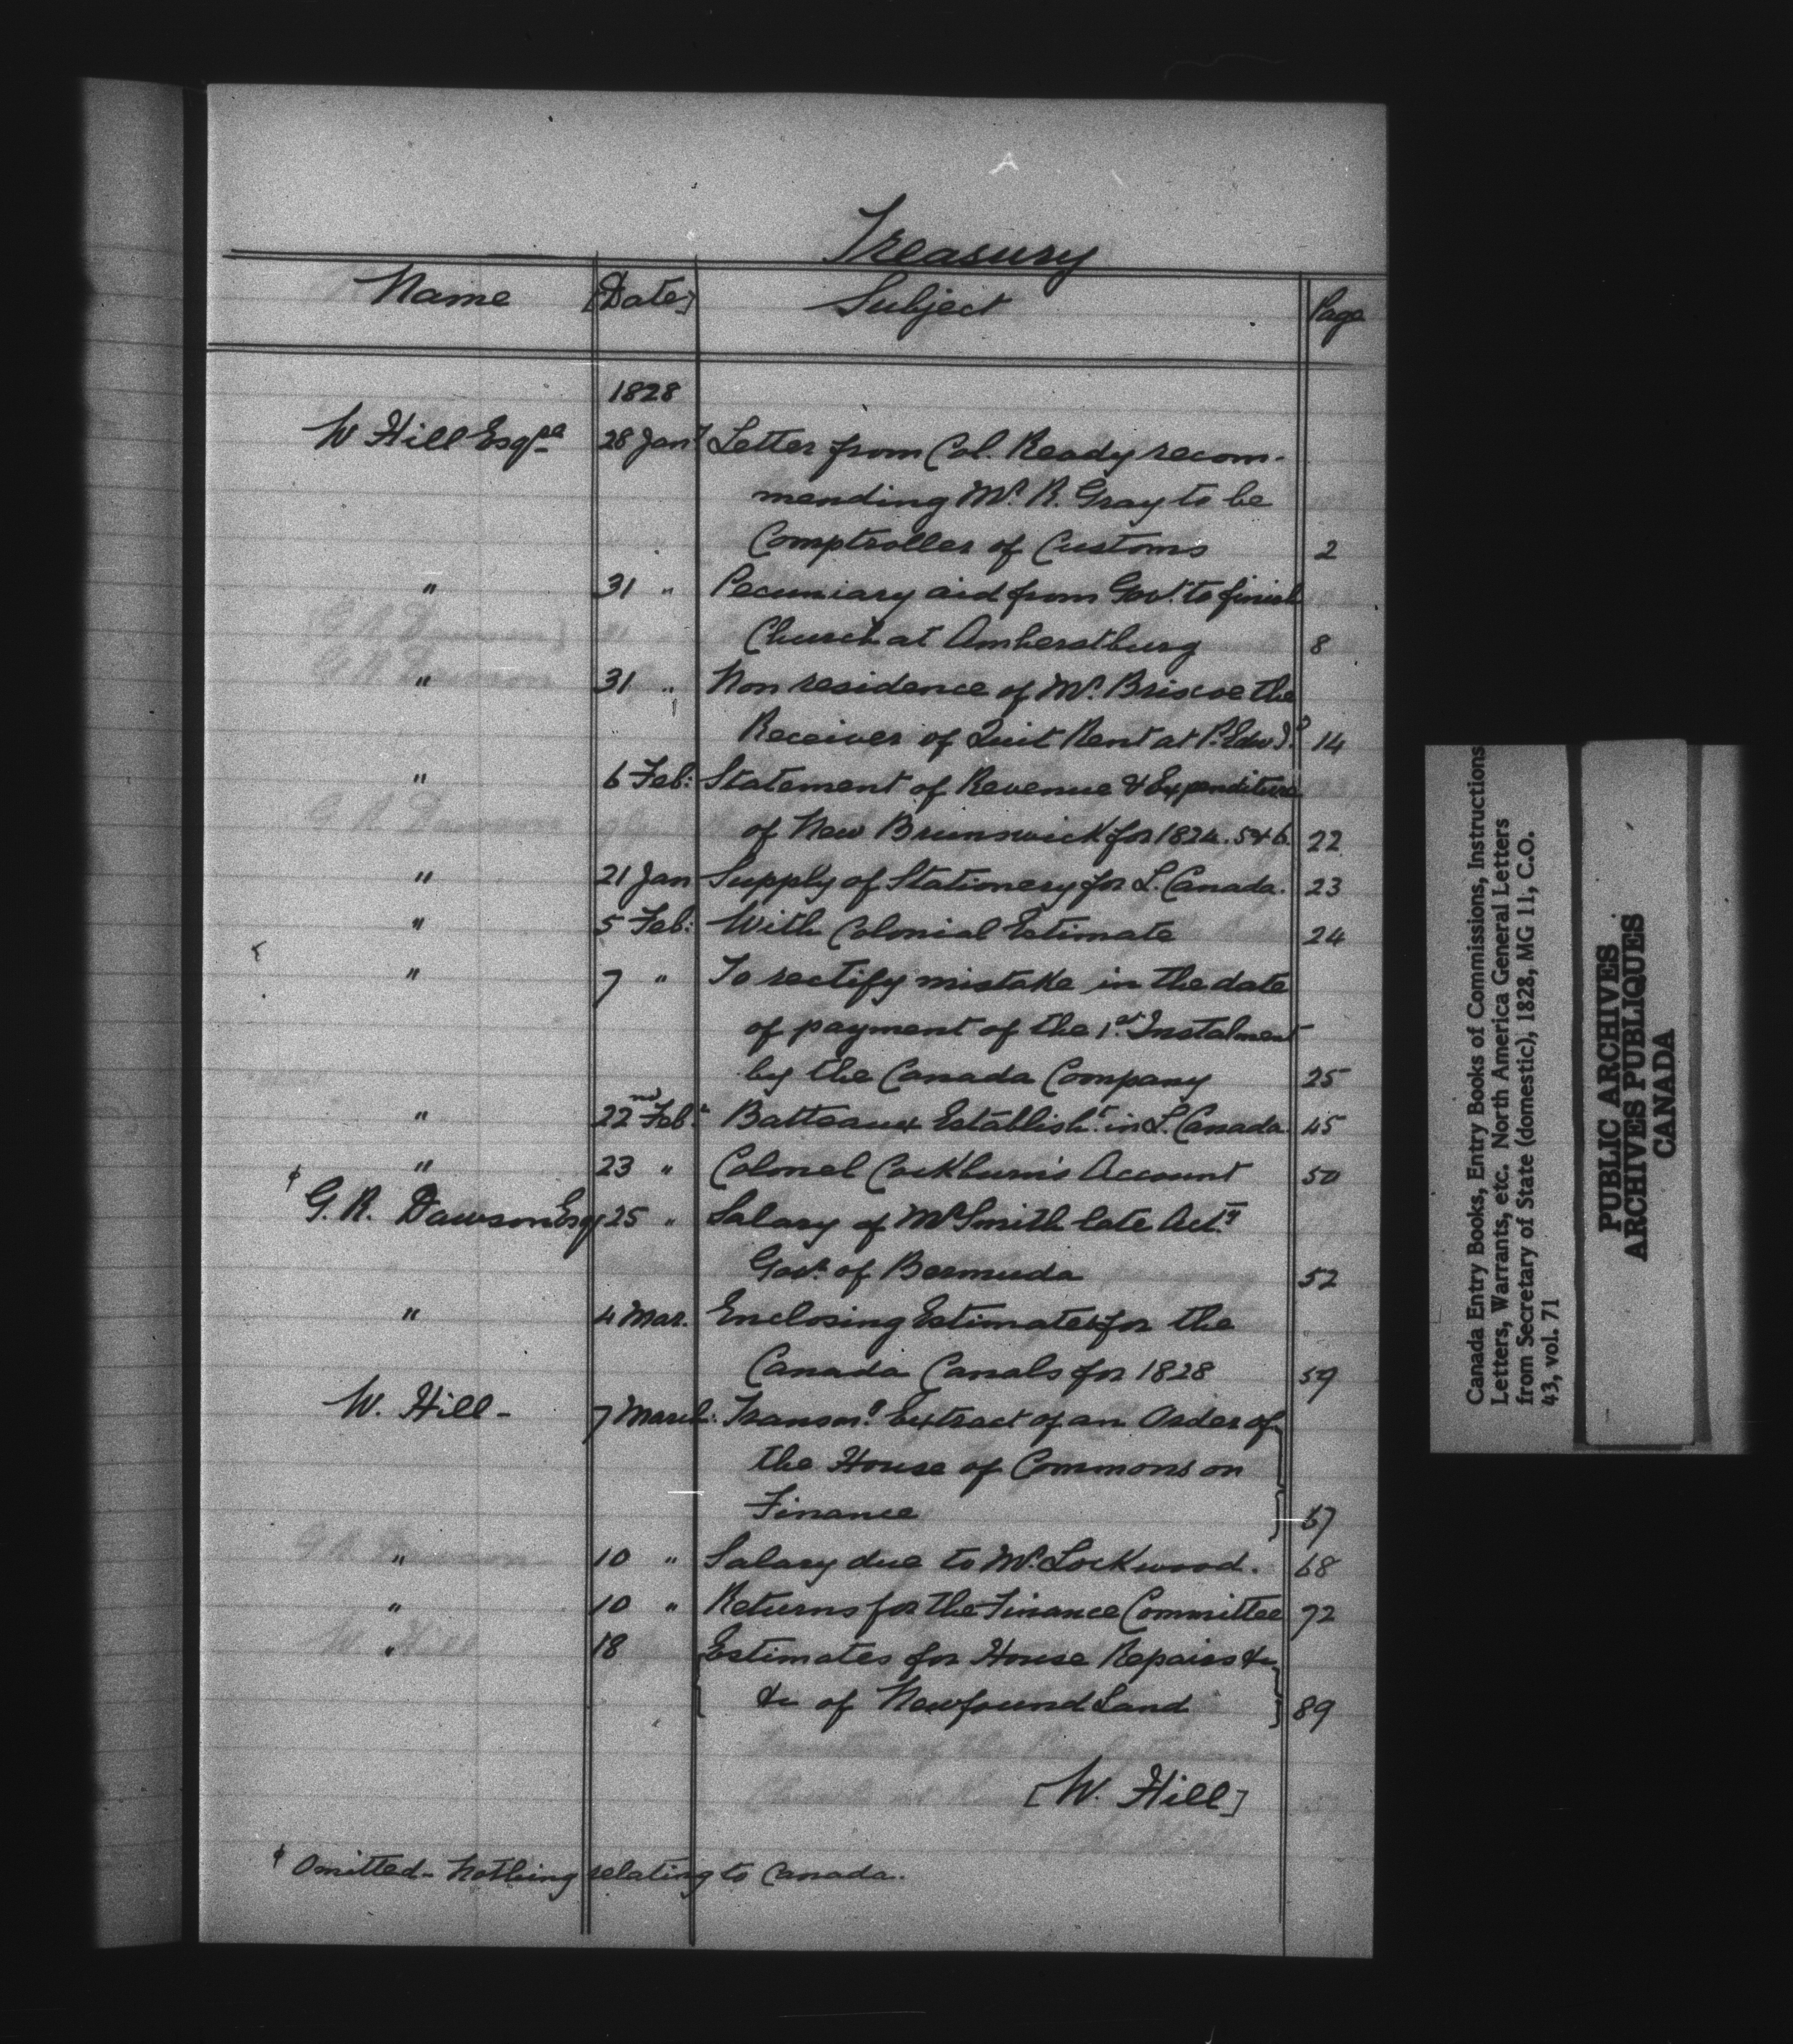 Treasury
Name [Date] Subject Page
1828
W Hill Esqre 28 Jany Letter from Col. Ready recom-
mending Mr. R. Gray to be
Comptroller of Customs 2
" 31 " Pecuniary aid from Govt. to finish
Church at Amherstburg 8
" 31 " Non residence of Mr. Briscoe the
Receiver of Quit Rent at P. Edwd. Id. 14
" 6 Feb: Statement of Revenue & Expenditure
of New Brunswick for 1824. 5 & 6. 22
" 21 Jan Supply of Stationery for L. Canada. 23
" 5 Feb: With Colonial Estimate 24
" 7 " To rectify mistake in the date
of payment of the 1st. Instalment
by the Canada Company 25
" 22nd Feby. Batteaux Establisht. in L. Canada. 45
" 23 " Colonel Cockburn's Account 50
φ G. R. Dawson Esq 25 " Salary of Mr Smith late Actg.
Govr. of Bermuda 52
" 4 Mar. Enclosing Estimates for the
Canada Canals for 1828 59
W. Hill - 7 March: Transmg. Extract of an Order of
the House of Commons on
Finance 67
" 10 " Salary due to Mr. Lockwood. 68
" 10 " Returns for the Finance Committee 72
" 18 Estimates for House Repairs &c
&c of Newfound Land 89
[W. Hill]
φ Omitted - Nothing relating to Canada.
Canada Entry Books, Entry Books of Commissions, Instructions
Letters, Warrants, etc. North America General Letters
from Secretary of State (domestic), 1828, MG 11, C.O.
43, vol. 71
PUBLIC ARCHIVES
ARCHIVES PUBLIQUES
CANADA